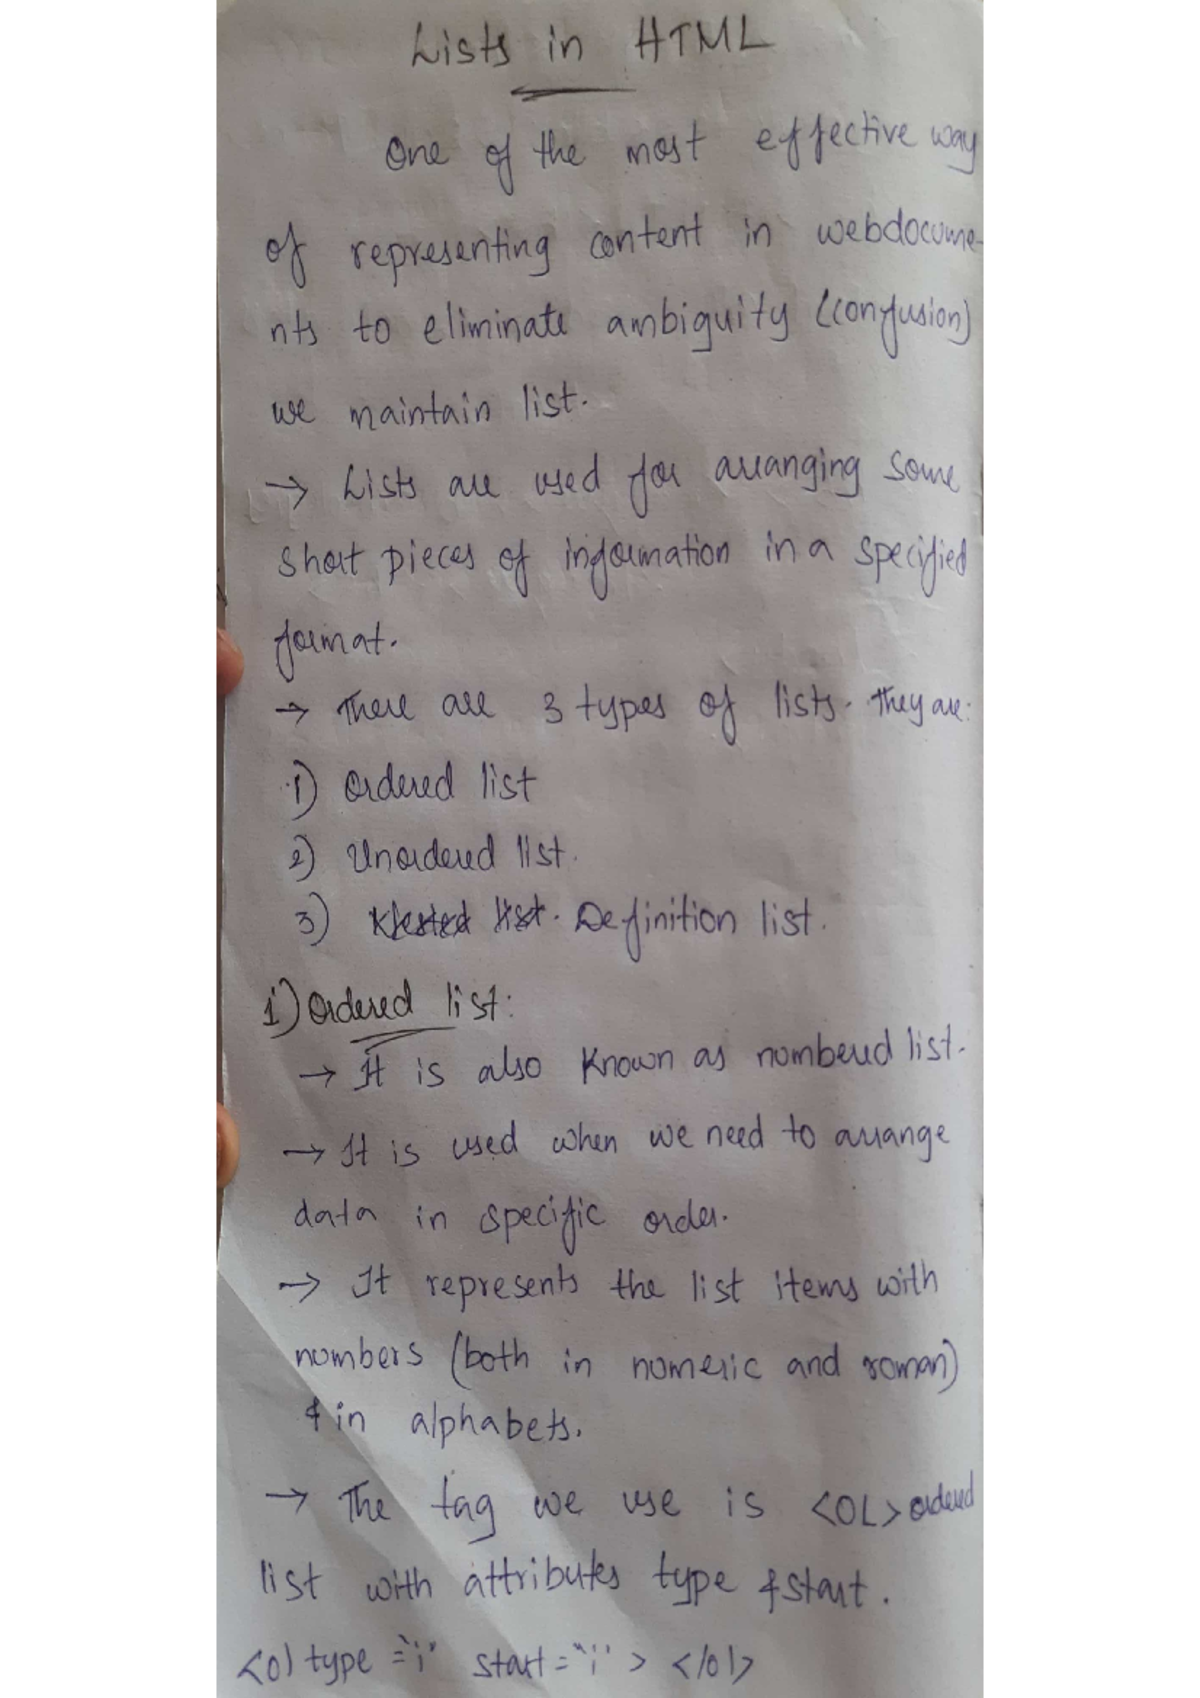 Lists in HTML
One of the most effective way
of representing content in webdocume-
nts to eliminate ambiguity (confusion)
we maintain list.
→ Lists are used for arranging some
short pieces of information in a specified
format.
→ There are 3 types of lists. They are:
1) Ordered list
2) Unordered list.
3) Nested list. Definition list.
1) Ordered list:
→ It is also known as numbered list.
→ It is used when we need to arrange
data in specific order.
→ It represents the list items with
numbers (both in numeric and roman)
& in alphabets.
→ The tag we use is <OL> ordered
list with attributes type & start.
<ol type="i" start="i"> </ol>